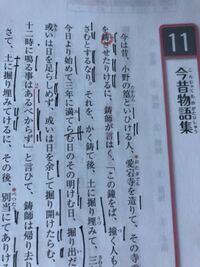 11
今昔物語集
今は昔、小野の篁といひける人、愛宕寺を造りて、その寺
を鋳させたりけるに、鋳師が言はく、「この鐘をば、撞く人も
さむとするなり。それを、かく鋳て後、土に掘り埋みて、三
今日より始めて三年に満てらむ日のその明けむ日、掘り出だ
或いは日を足らしめず、或いは日を余して掘り開けたらむ、
十二時に鳴る事はあるべからず」と言ひて、鋳師は帰り去
さて、土に掘り埋みてけるに、その後、別当にてありけ